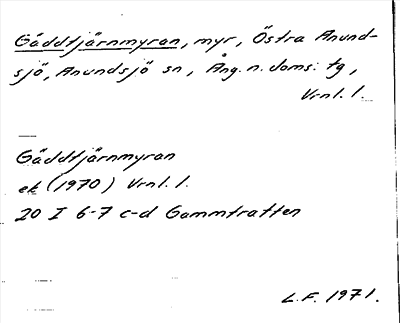 Gäddtjärnmyran, myr, Östra Anund-
sjö, Anundsjö sn, Ång. n. doms: tg,
Vrnl. l.
Gäddtjärnmyran
ek (1970) Vrnl. l.
20 I 6-7 c-d Gammtratten
L.F. 1971.